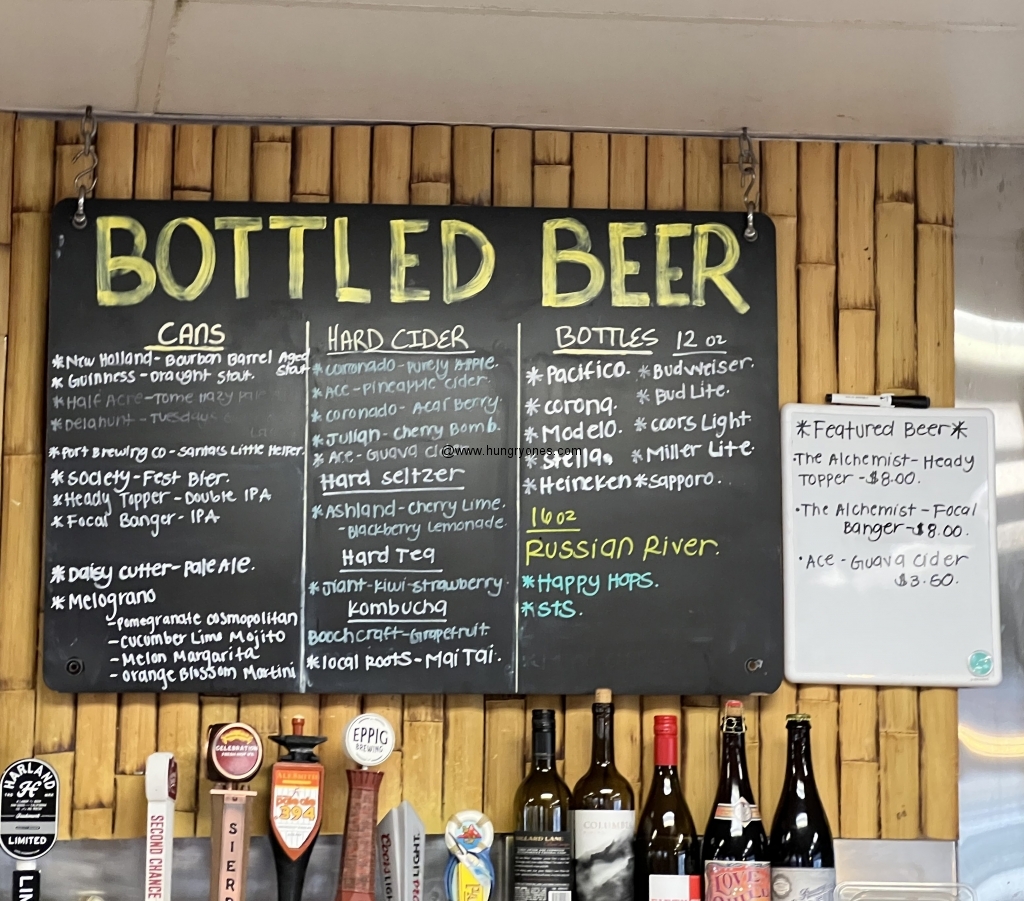 BOTTLED BEER
CANS
*New Holland- Bourbon Barrel Aged
Stout
*Guinness-Draught Stout.
*Half Acre-Tome Hazy
*Delahunt-Tuesdays
*Port Brewing Co-Santas Little Helper.
*Society-Fest Bier.
*Heady Topper-Double IPA
*Focal Banger-IPA
*Daisy Cutter-Pale Ale.
*Melograno
-Pomegranate Cosmopolitan
-Cucumber Lime Mojito
-Melon Margarita
-Orange Blossom Martini
HARD CIDER
*Coronado-Purely Apple.
*Ace-Pineapple Cider.
*Coronado-Acai Berry.
*Julian-Cherry Bomb.
*Ace-Guava
Hard Seltzer
*Ashland-Cherry Lime.
-Blackberry Lemonade
Hard Tea
*Jiant-Kiwi-Strawberry.
Kombucha
Boochcraft-Grapefruit.
*local Roots-Mai Tai.
BOTTLES 12 oz
*Pacifico. *Budweiser.
*Corona. *Bud Lite.
*Modelo. *Coors Light
*Stella. *Miller Lite.
*Heineken *Sapporo.
16oz
Russian River.
*Happy Hops.
*STS.
@www.hungryones.com
*Featured Beer*
·The Alchemist-Heady
Topper-$8.00.
·The Alchemist-Focal
Banger-$8.00.
·Ace-Guava Cider
$3.50.
HARLAND
H
LIMITED
LIN
SECOND CHANCE
CELEBRATION
SIERR
ALESMITH
pale ale
394
EPPIG
BREWING
LIGHT
COLUMBIA
LOVE